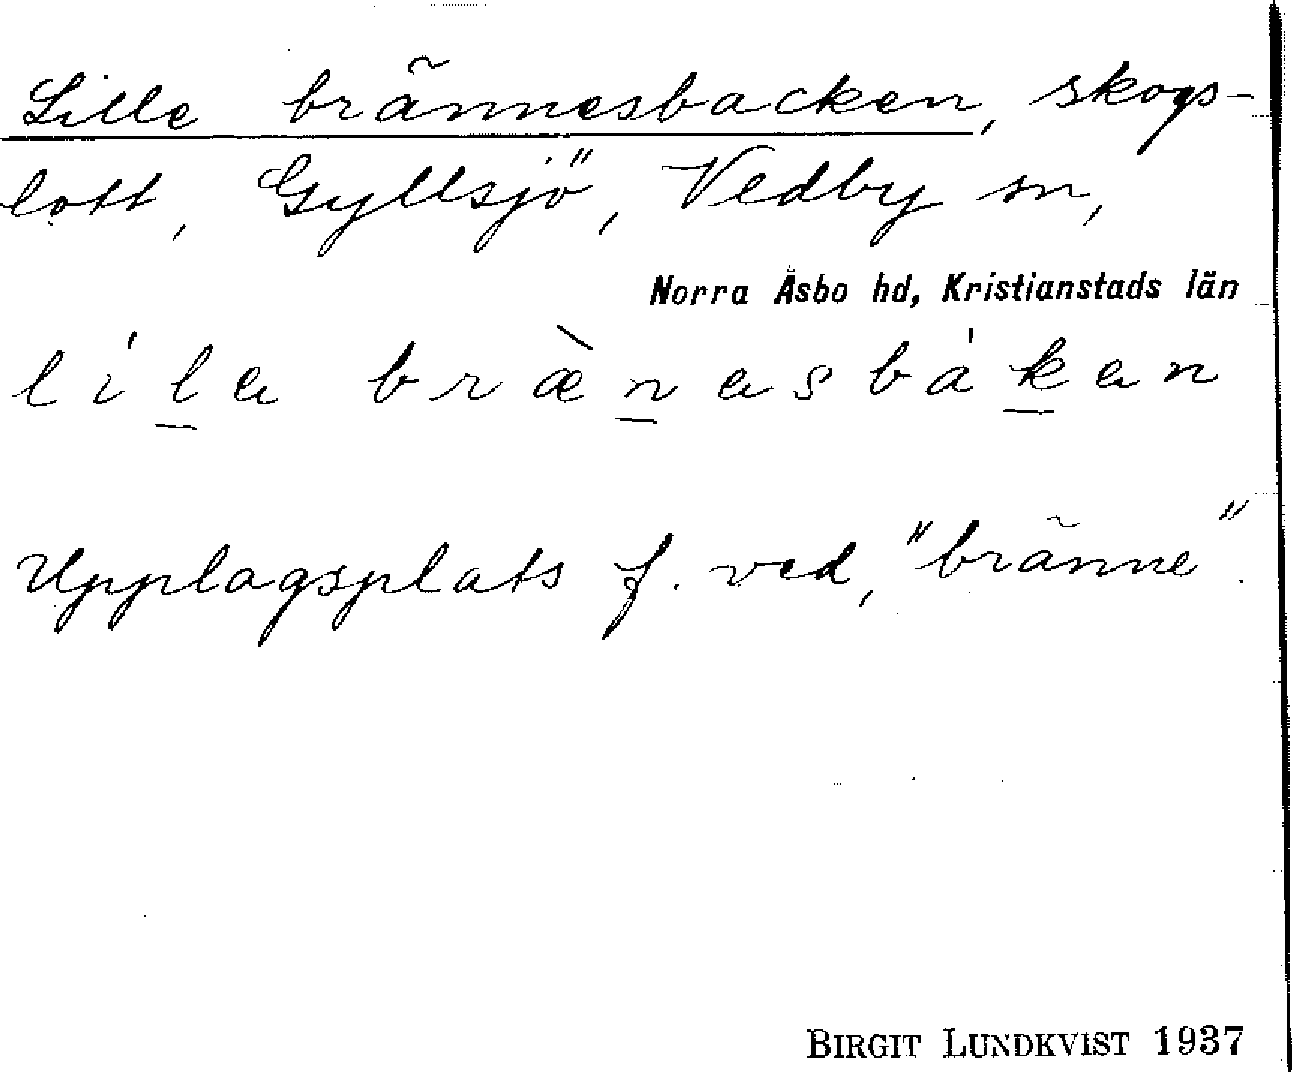 Lille brännesbacken, skogs-
lott, Gyllsjö, Vedby sn,
Norra Åsbo hd, Kristianstads län
lí̱la bræ̀ṉasbáḵan
Upplagsplats f. ved, "bränne".
BIRGIT LUNDKVIST 1937